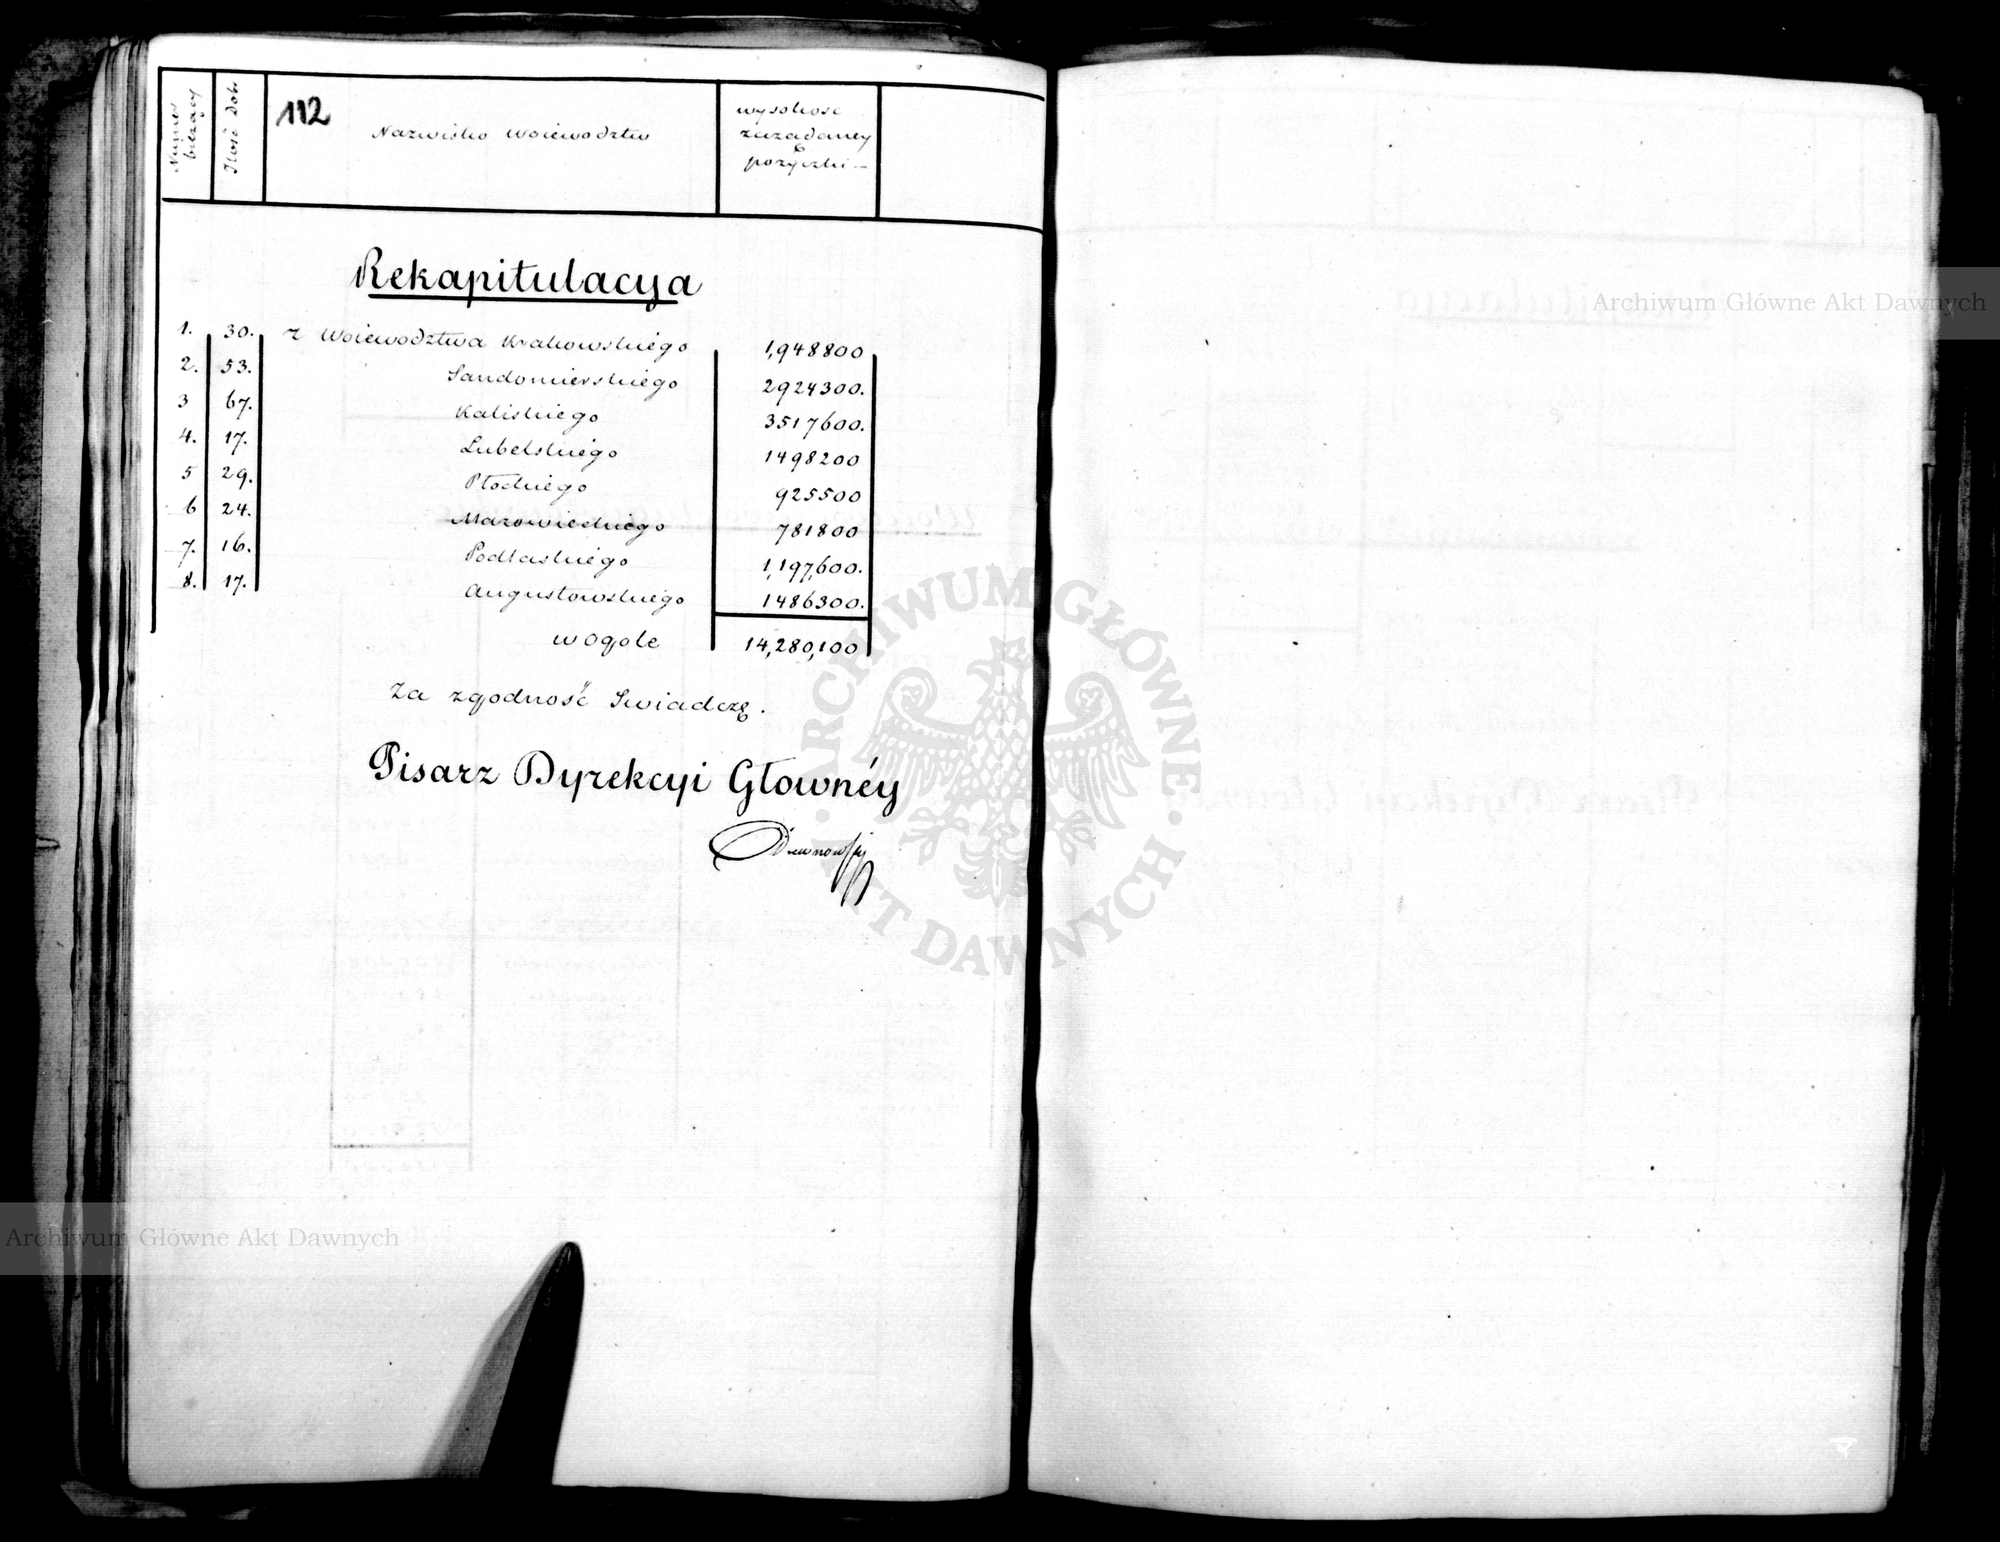 Numer bieżący
Ilość Dobr
112
Nazwisko Woiewodztw
wysokosc
zażądaney
pożyczki –
Rekapitulacya
1. 30. z Woiewodztwa Krakowskiego 1,948800
2. 53. Sandomierskiego 2924300.
3 67. Kaliskiego 3517600.
4. 17. Lubelskiego 1498200
5 29. Płockiego 925500
6 24. Mazowieckiego 781800
7. 16. Podlaskiego 1,197,600.
8. 17. Augustowskiego 1486300.
wogole 14,280,100
Za zgodność Swiadczę.
Pisarz Dyrekcyi Głownéy
Drewnowski
Archiwum Główne Akt Dawnych
Archiwum Główne Akt Dawnych
ARCHIWUM GŁÓWNE
AKT DAWNYCH